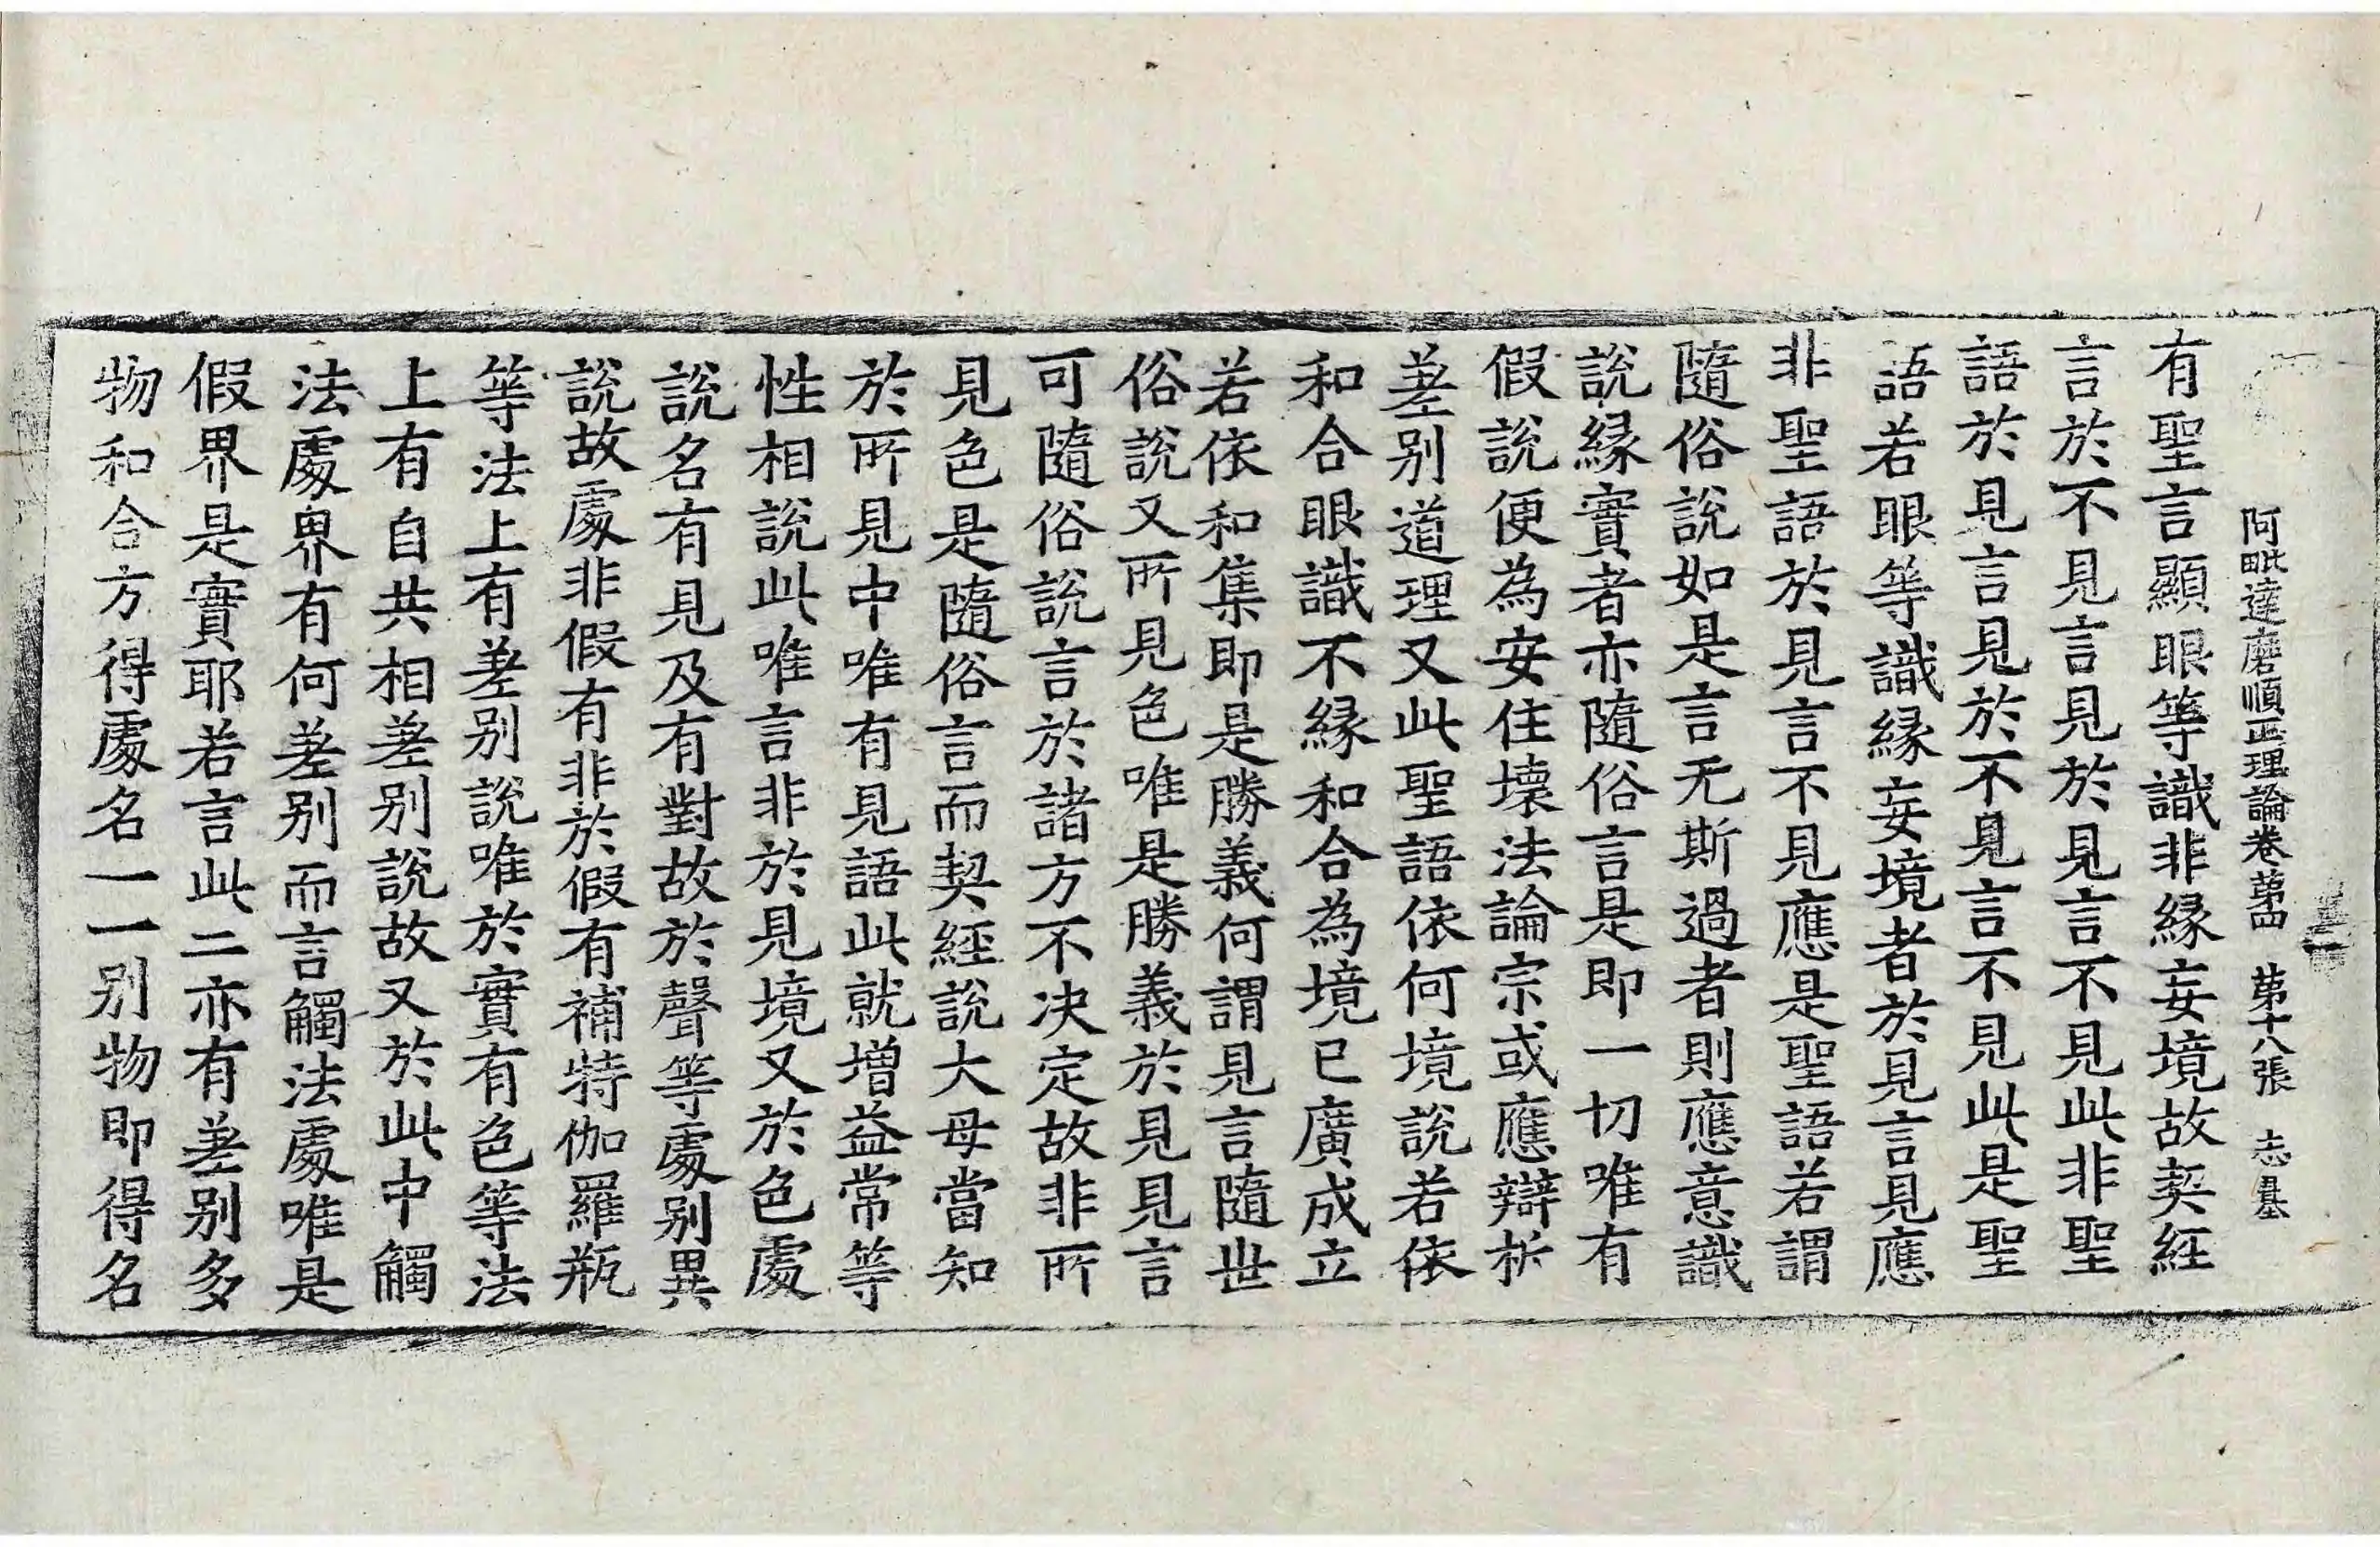 阿毗達磨順正理論卷苐四　苐十八張　志𡊮
有聖言顯眼等識非縁妄境故契經
言於不見言見於見言不見此非聖
語於見言見於不見言不見此是聖
語若眼等識縁妄境者於見言見應
非聖語於見言不見應是聖語若謂
隨俗說如是言无斯過者則應意識
說縁實者亦隨俗言是即一切唯有
假說便為安住壞法論宗或應辯析
差别道理又此聖語依何境說若依
和合眼識不縁和合為境已廣成立
若依和集即是勝義何謂見言隨世
俗說又所見色唯是勝義於見見言
可隨俗說言於諸方不决定故非所
見色是隨俗言而契經說大母當知
於所見中唯有見語此就增益常等
性相說此唯言非於見境又於色處
說名有見及有對故於聲等處别異
說故處非假有非於假有補特伽羅瓶
等法上有差别說唯於實有色等法
上有自共相差别說故又於此中觸
法處界有何差别而言觸法處唯是
假界是實耶若言此二亦有差别多
物和合方得處名一一别物即得名